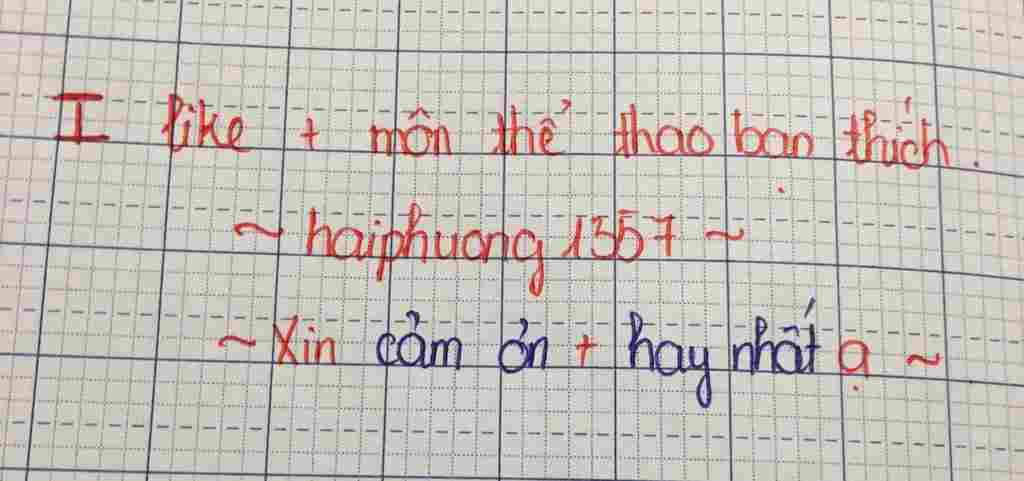 I like + môn thể thao bạn thích.
~ haiphuong 1357 ~
~ Xin cảm ơn + hay nhất ạ ~